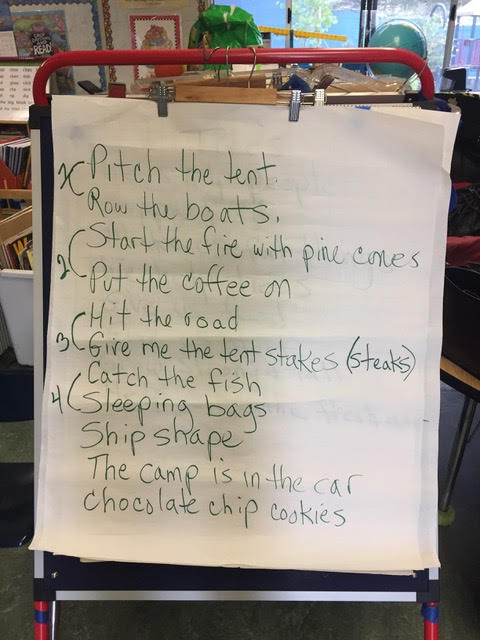 READ
Pitch the tent.
Row the boats.
2( Start the fire with pine cones
Put the coffee on
3( Hit the road
Give me the tent stakes (steaks)
4( Catch the fish
Sleeping bags
Ship shape
The camp is in the car
chocolate chip cookies